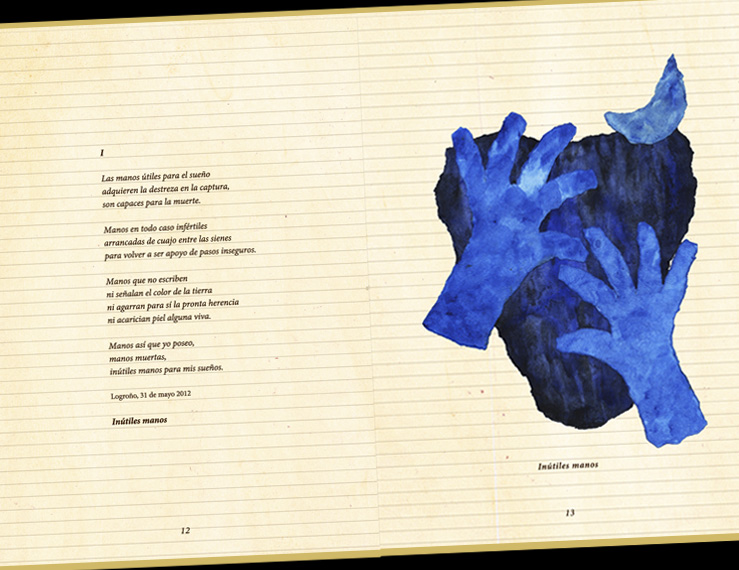 I
Las manos útiles para el sueño
adquieren la destreza en la captura,
son capaces para la muerte.
Manos en todo caso infértiles
arrancadas de cuajo entre las sienes
para volver a ser apoyo de pasos inseguros.
Manos que no escriben
ni señalan el color de la tierra
ni agarran para sí la pronta herencia
ni acarician piel alguna viva.
Manos así que yo poseo,
manos muertas,
inútiles manos para mis sueños.
Logroño, 31 de mayo 2012
Inútiles manos
12
Inútiles manos
13